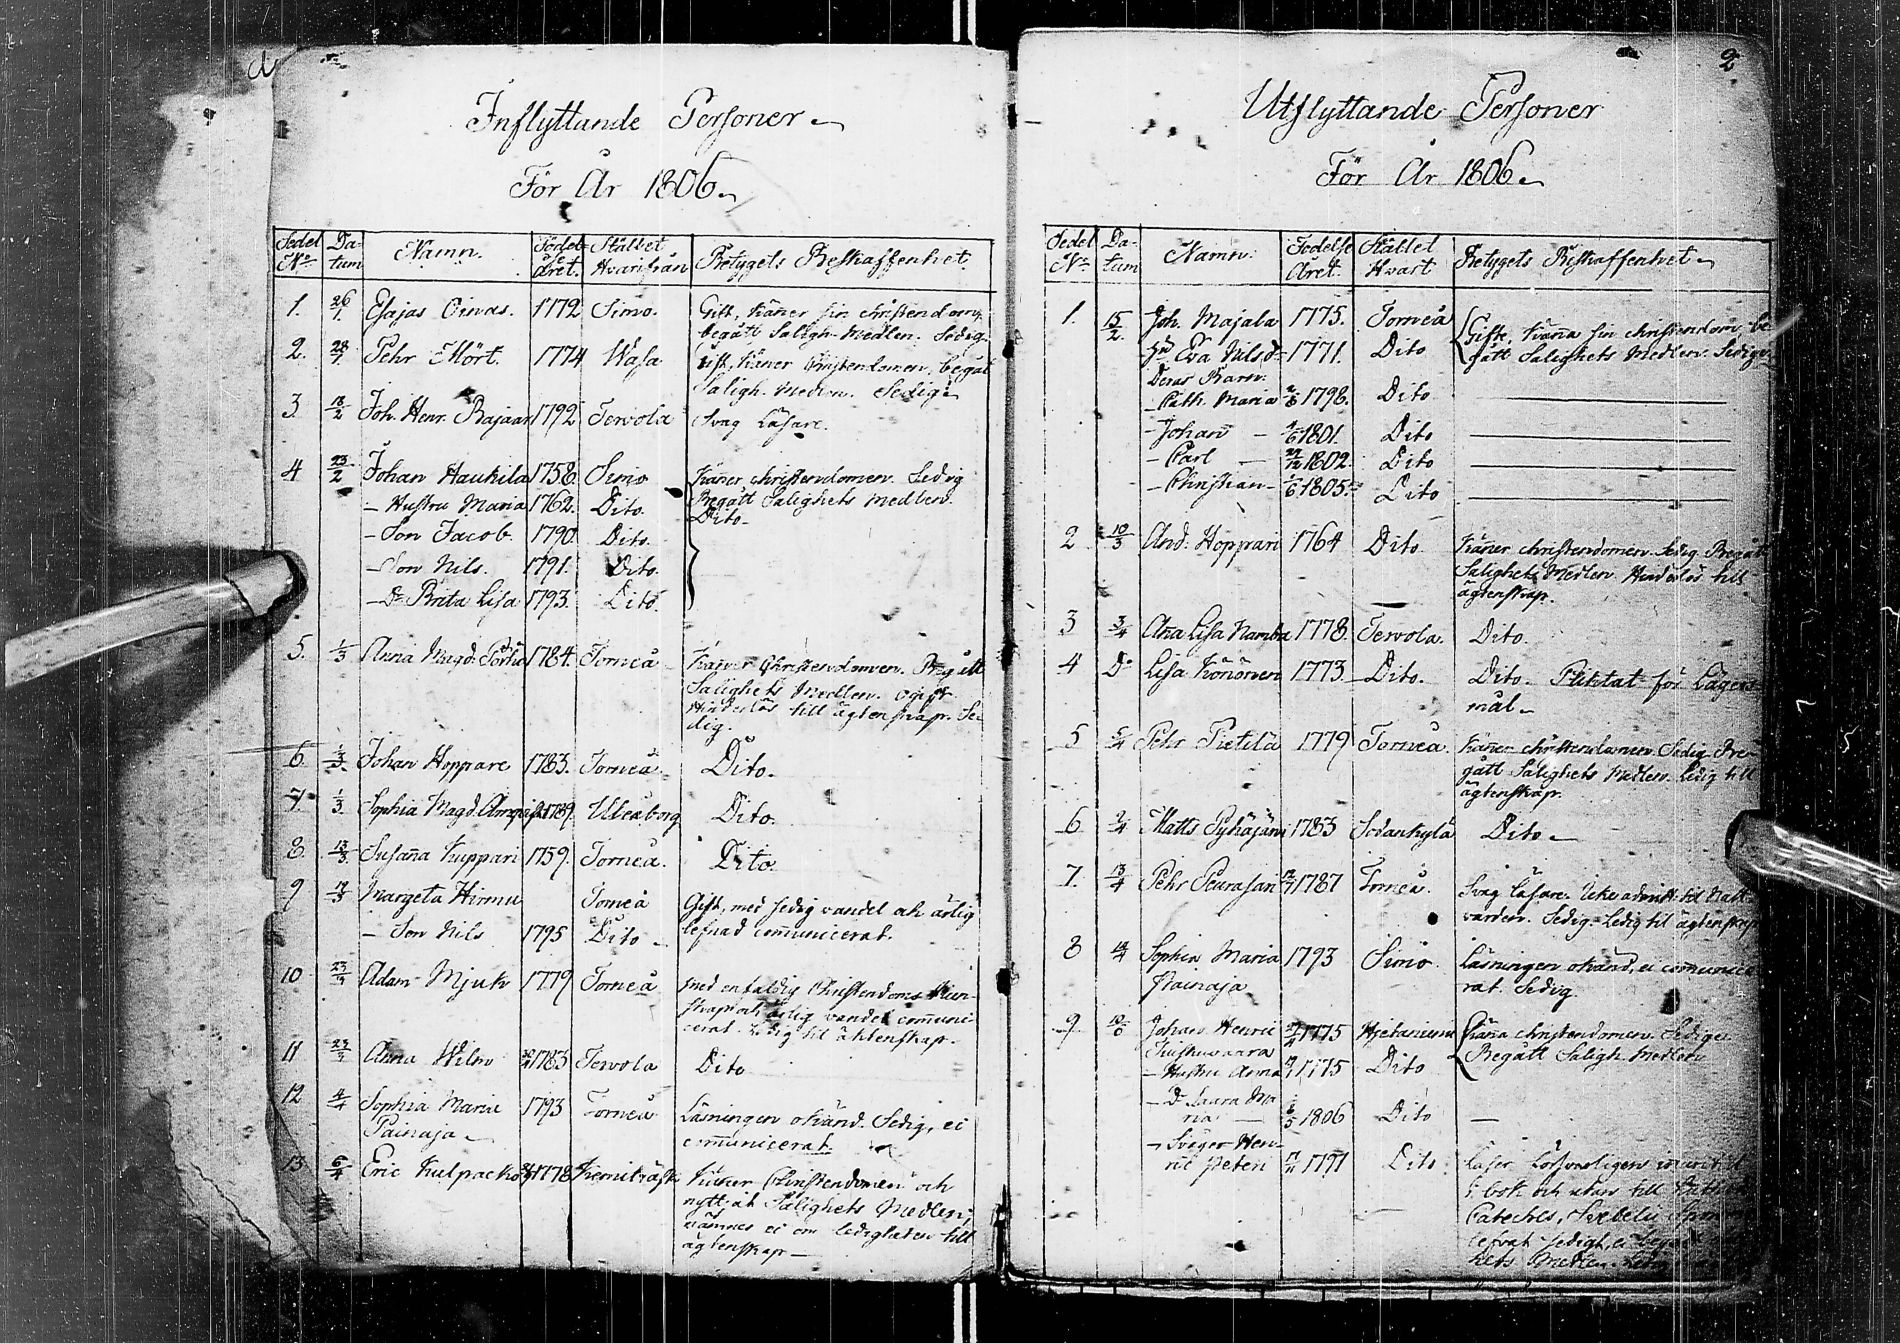 Inflyttande Personer
För År 1806.
Sedel No Datum Namn. Födelse Året. Stället Hvarifrån Betygets Beskaffenhet.
1. 26/1. Esajas Oinas. 1772 Simo. Gift, känner sin christendom,
begått Saligh. Medlen. Sedig.
2. 28/1. Pehr Mört. 1774 Wasa Gift, känner christendomen, begåt
Saligh. Medlen. Sedig.
3 18/2 Joh. Henr. Rajaan 1792 Tervola Svag Läsare.
4 23/2 Johan Haukila 1758. Simo Känner christendomen. Sedig
Begått Salighets Medlen.
– Hustru Maria 1762. Dito. Dito
– Son Jacob. 1790. Dito.
– Son Nils. 1791. Dito.
– Dr Brita Lisa 1793. Dito.
5. 1/3 Anna Magd. 1784. Torneå Känner Christendomen. Begått
Salighets Medlen. ogift
Hinderlös till ägtenskap. Se-
dig.
6 1/3. Johan Hoppare 1783. Torneå. Dito.
7 1/3. Sophia Magd. 1789. Uleaborg Dito.
8. 13/3. Susaña Kuppari 1759. Torneå. Dito.
9 Margeta Hirmu Torneå Gift, med sedig vandel och ärlig
lefnad comunicerat.
– Son Nils 1795 Dito
10 Adam Mjuk 1779 Torneå med enfaldig Christendoms Kun-
skap och ärlig vandel comuni-
cerat. Ledig til äktenskap.
11 Anna Wilm 1783 Tervola Dito
12 Sophia Maria 1793 Torneå Läsningen okänd. Sedig, ei
Painaja comunicerat.
13. 6/4 Eric 1778 Kemiträsk Känner Christendomen och
nyttjat Salighets Medlen;
nämnes ei om ledigheten till
ägtenskap
2
Utflyttande Personer
För År 1806.
Sedel No Datum Namn. Födelse Året. Stället Hvart Betygets Beskaffenhet
1. 15/2. Joh. Majala 1775. Torneå Gifte, känna sin christendom, be-
Hu Eva Nilsd. 1771. Dito gått Salighets Medlen. Sedige
Deras Barn:
– Cath. Maria 1798. Dito
– Johañ – 1801. Dito
– Carl – 1802. Dito
– Christian – 1805. Dito
2 10/3 And. Hoppari 1764 Dito Känner christendomen. Sedig. Begått
Salighets Medlen. Hinderlös till
ägtenskap.
3 3/4 Aña Lisa Namba 1778. Tervola. Dito.
4 Do Lisa Könönen 1773 Dito. Dito. Pliktat för Lägers-
mål
5 5/4 Pehr Pietilä 1779 Torneå. Känner christendomen. Sedig. Be-
gått Salighets Medlen. Ledig till
ägtenskap.
6 Matts Pyhäjärvi 1783 Sodankylä Dito
7. 13/4 Pehr Peurasari 1787 Torneå. Svag läsare. Icke admitt. til Natt-
varden. Sedig. Ledig til ägtenskap
8 Sophia Maria 1793 Simo. Läsningen okänd, ei comunice-
Painaja rat. Sedig.
9 Johan Henric 1775 Hietaniemi Käña christendomen. Sedige.
– Hustru Anna 1775 Dito Begått Saligh. Medlen
– Dr Laura Ma-
ria 1806 Dito –
– Svåger Hen-
ric Peteri 1791 Dito Läser
i bok och utan till
Cateches,
lefvat sedigt, ei begått
hets Medlen.